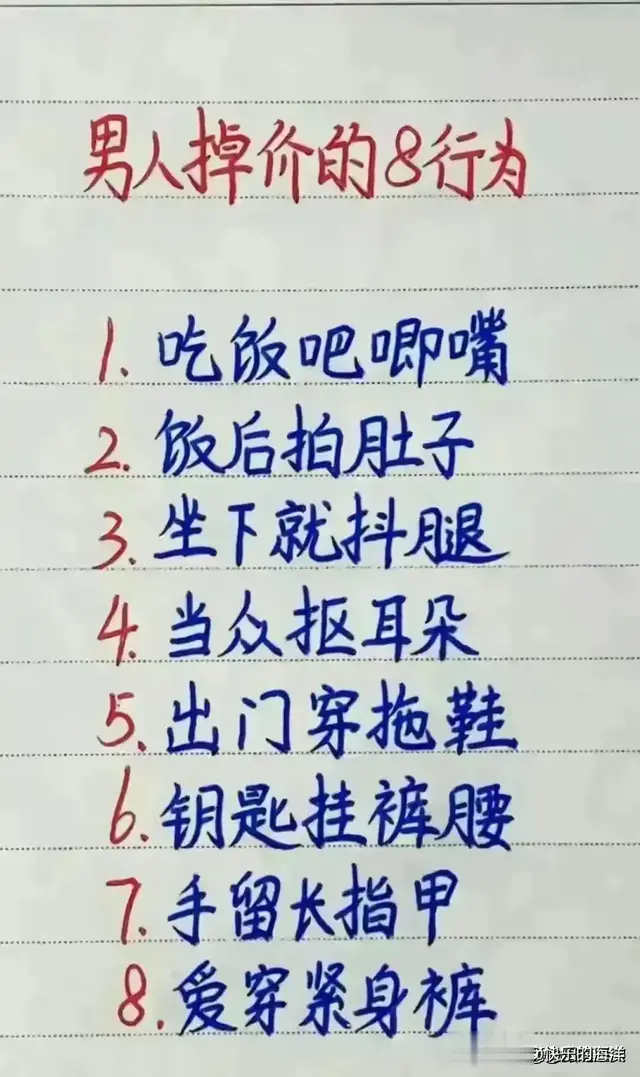 男人掉价的8行为
1. 吃饭吧唧嘴
2. 饭后拍肚子
3. 坐下就抖腿
4. 当众抠耳朵
5. 出门穿拖鞋
6. 钥匙挂裤腰
7. 手留长指甲
8. 爱穿紧身裤
快乐的海洋